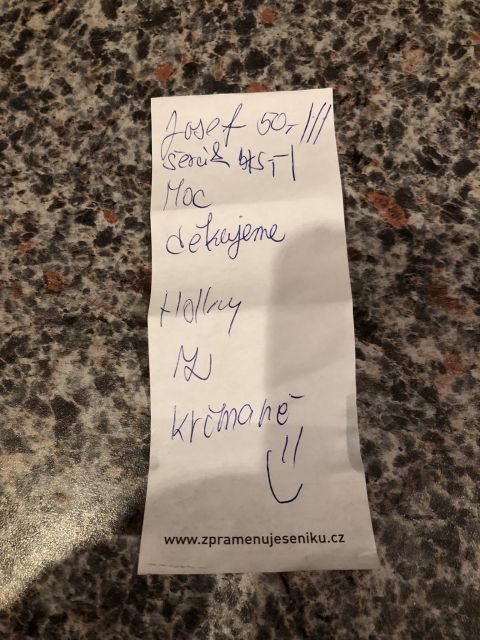 Josef 50,- |||
Moc
děkujeme
Holky
z
Krčmaně
www.zpramenujeseniku.cz